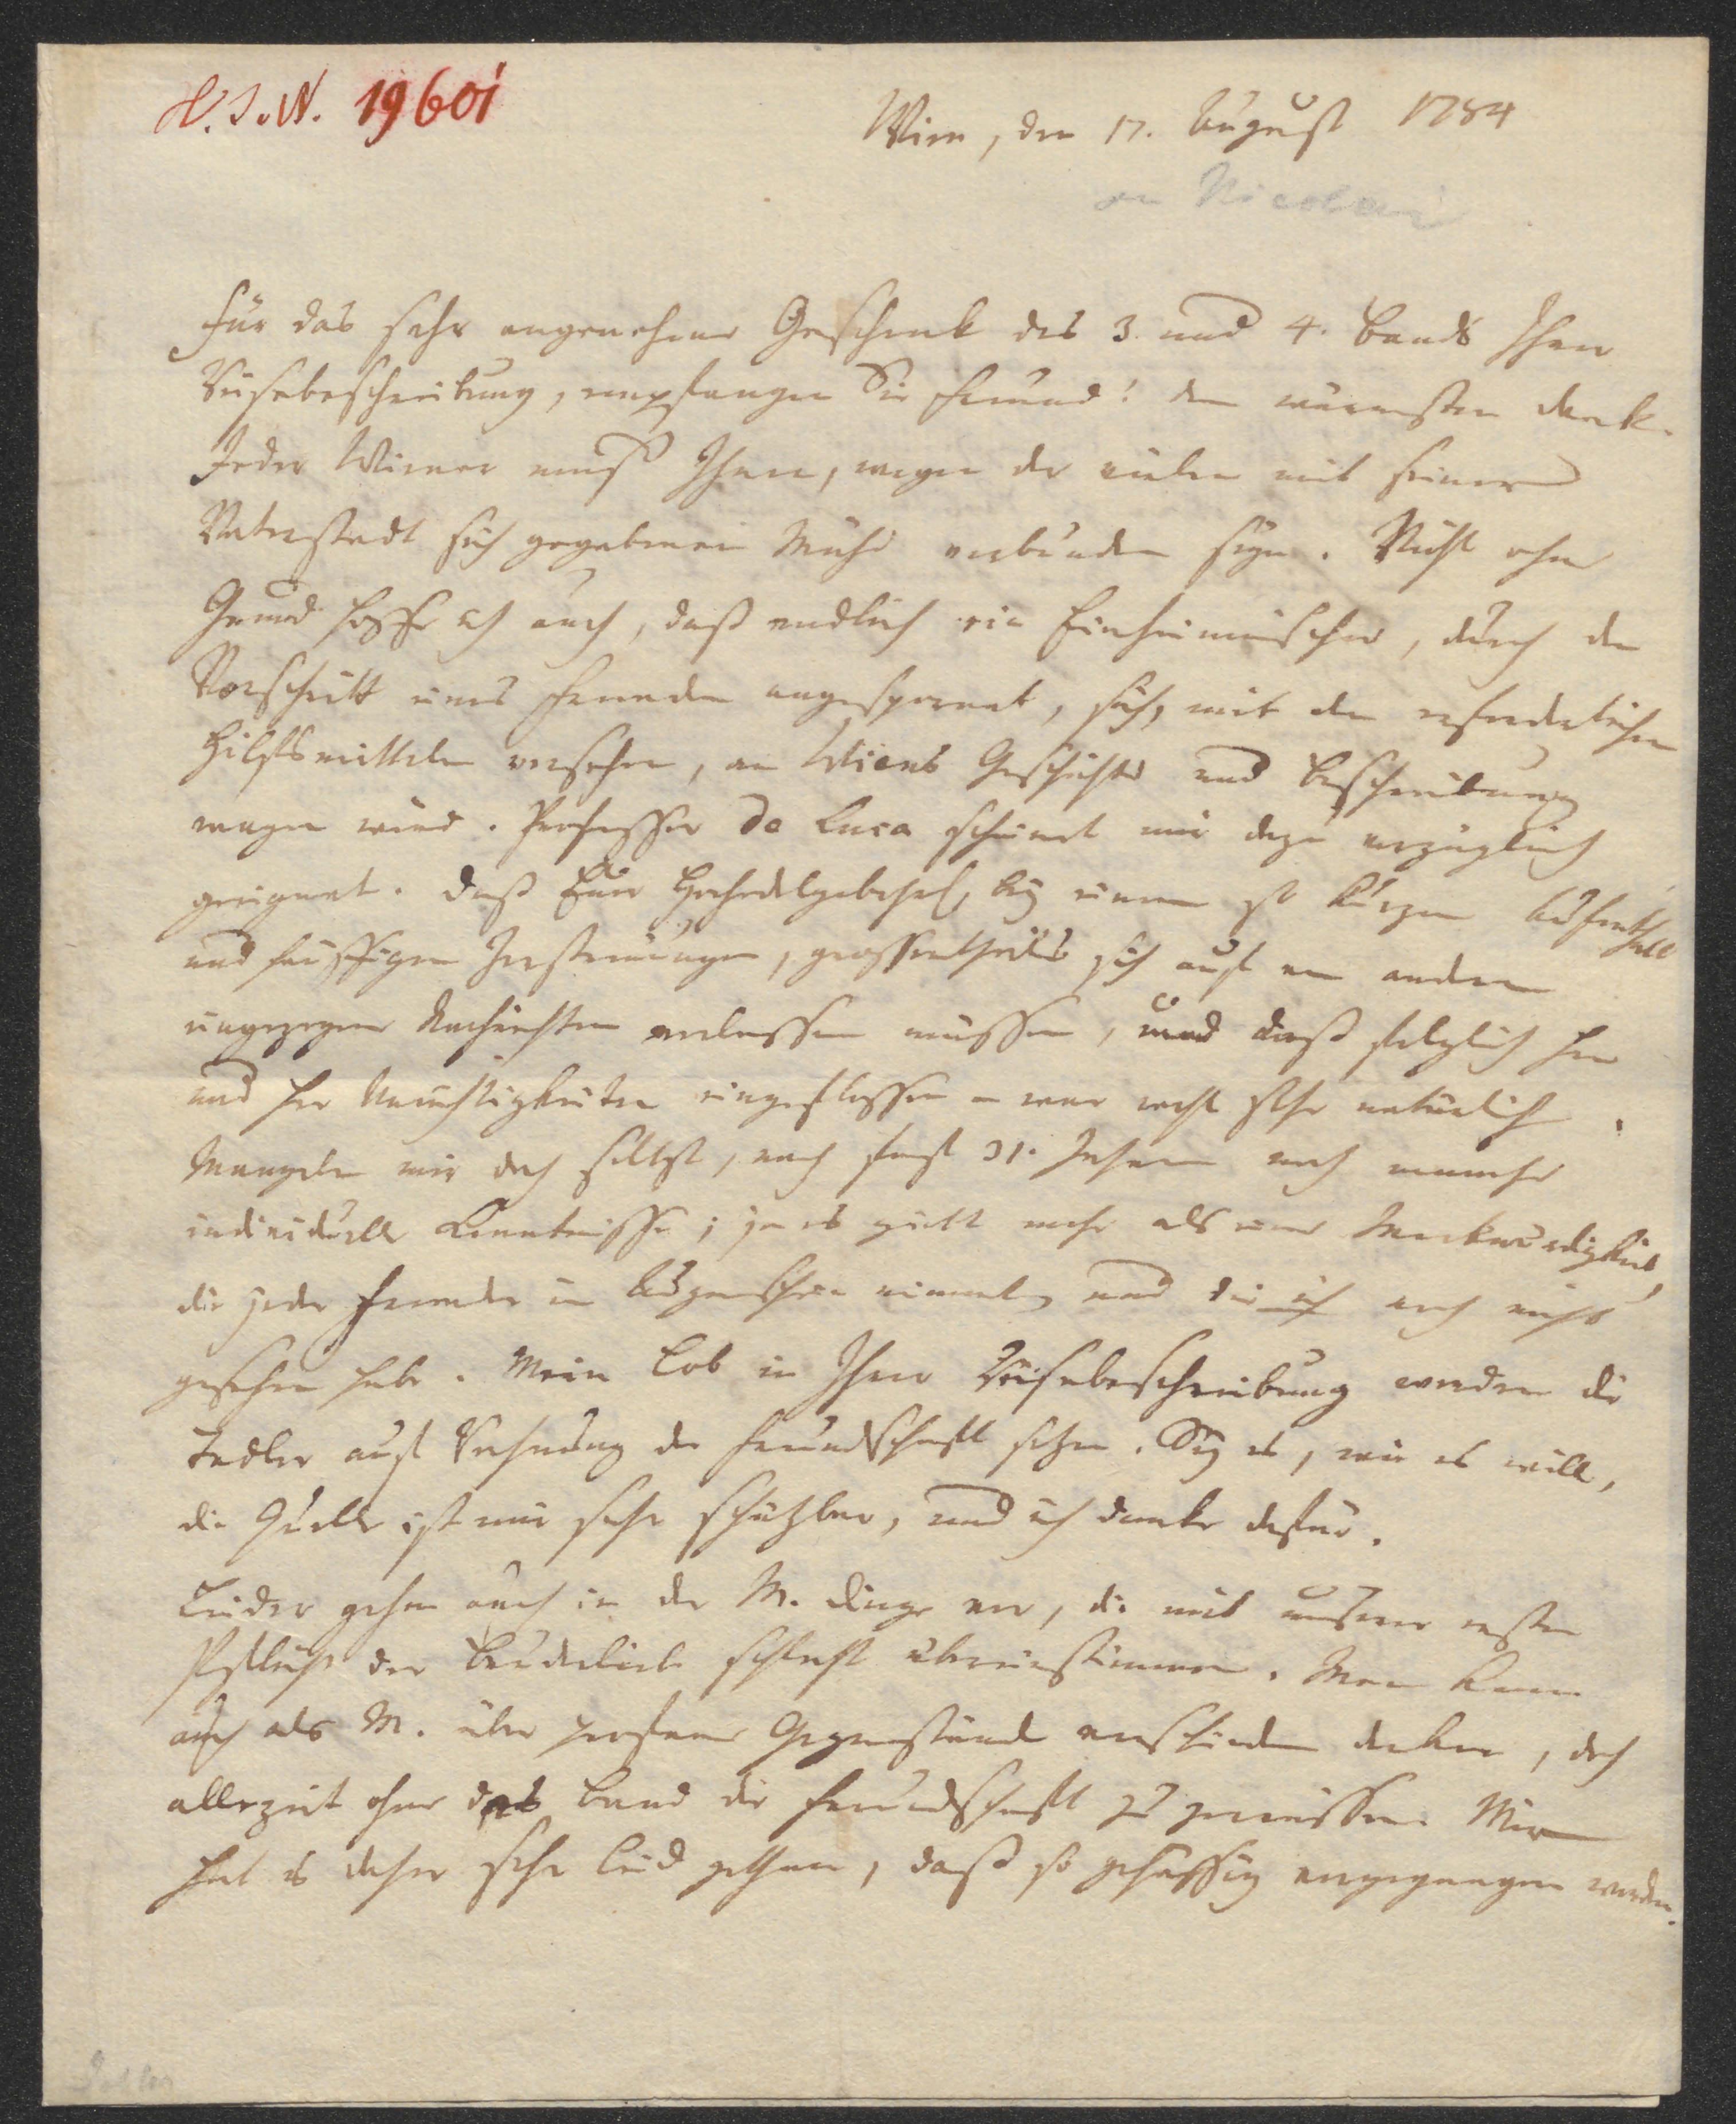 H.I.N. 19601
Wien, den 17. August 1784
an Nicolai
Für das sehr angenehme Geschenk des 3. und 4. Bands Ihrer
Reisebeschreibung, empfangen Sie Freund! den wärmsten Dank.
Jeder Wiener muß Ihnen, wegen der vielen mit seiner
Vaterstadt sich gegebenen Mühe verbunden seyn. Nicht ohne
Grund hoffe ich auch, daß endlich ein Einheimischer, durch den
Vorschritt eines Fremden angespornet, sich, mit den erforderlichen
Hilfsmitteln versehen, an Wiens Geschichte und Beschreibung
wagen wird. Professor de Luca scheinet mir dazu vorzüglich
geeignet. Daß Euer Hochedelgebohrn, bey einem so kurzen Aufenthalt
und häuffigen Zerstreuungen, grossentheils sich auf von andern
eingezogene Nachrichten verlassen müssen, und daß folglich hie
und her Unrichtigkeiten eingeflossen – war recht sehr natürlich.
Mangeln mir doch selbst, nach fast 31. Jahren noch manche
individuelle Kenntnisse; ja es giebt mehr als eine Merkwürdigkeit,
die jeder Fremde in Augenschein nimmt, und die ich noch nicht
gesehen habe. Mein Lob in Ihrer Reisebeschreibung werden die
Tadler auf Rechnung der Freundschaft setzen. Sey es, wie es will,
die Quelle ist mir sehr schätzbar, und ich danke dafür.
Leider gehen auch in der M. Dinge vor, die mit unserer ersten
Pflicht der Bruderliebe schlecht übereinstimmen. Man kann
auch als M. über profane Gegenstände verschieden denken, doch
allezeit ohne das Band der Freundschaft zu zerreissen. Mir
hat es daher sehr leid gethan, daß so gehässig vorgegangen worden.